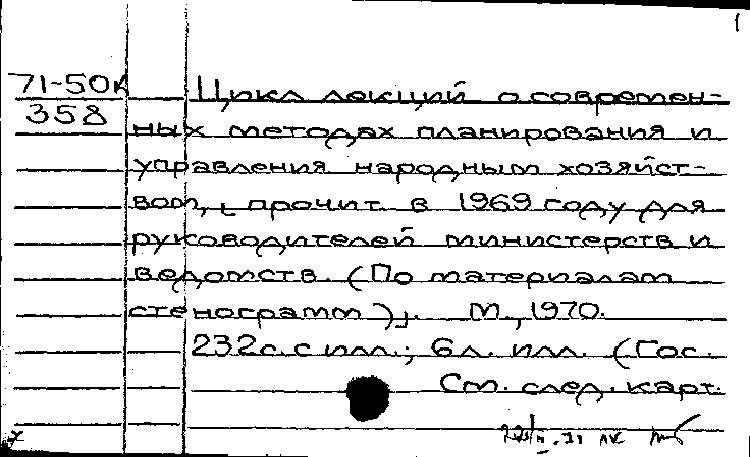 1
71-50к
358
Цикл лекций о современ-
ных методах планирования и
управления народным хозяйст-
вом, [прочит. в 1969 году для
руководителей министерств и
ведомств. (По материалам
стенограмм)]. М., 1970.
232с. с илл.; 6л. илл. (Гос.
См. след. карт.